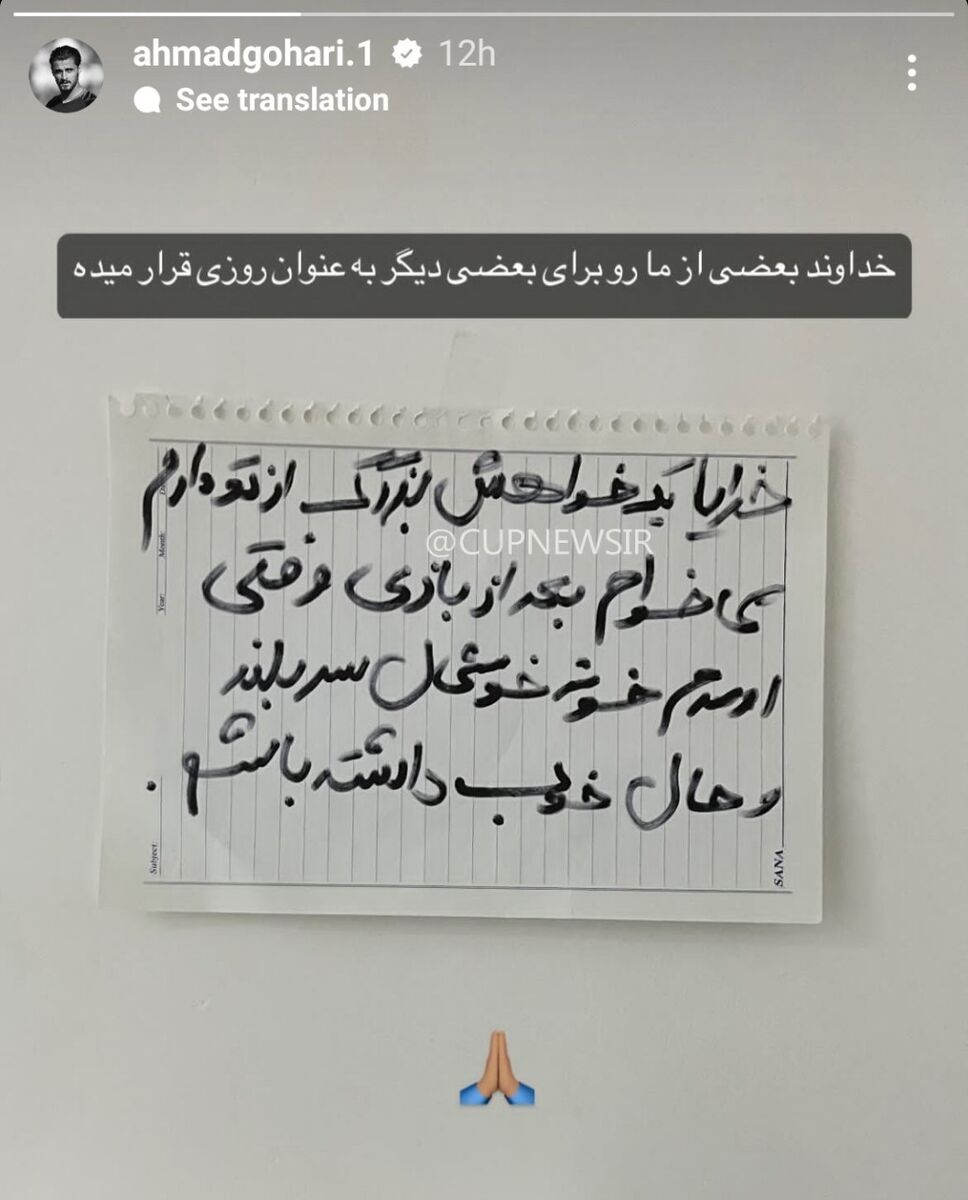 ahmadgohari.1 12h
See translation
خداوند بعضی از ما رو برای بعضی دیگر به عنوان روزی قرار میده
خدایا یک خواهش بزرگ از تو دارم
@CUPNEWSIR
می خواهم بعد از بازی وقتی
اومدم خونه خوشحال سربلند
و حال خوب داشته باشم .
Month:
Year:
Subject:
SANA
🙏🏽